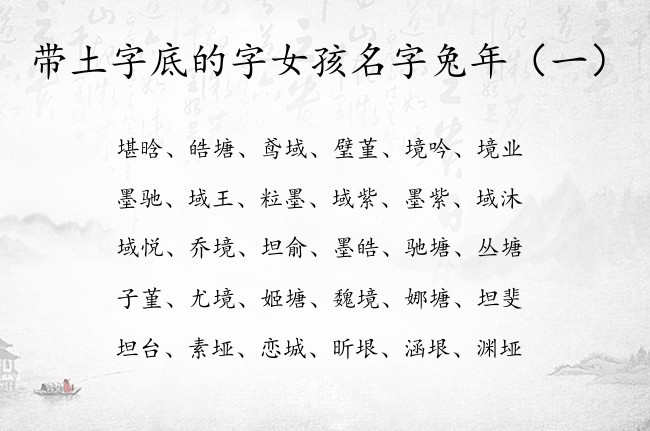 带土字底的字女孩名字兔年（一）
堪晗、皓塘、鸢域、璧堇、境吟、境业
墨驰、域王、粒墨、域紫、墨紫、域沐
域悦、乔境、坦俞、墨皓、驰塘、丛塘
子堇、尤境、姬塘、魏境、娜塘、坦斐
坦台、素垭、恋城、昕垠、涵垠、渊垭